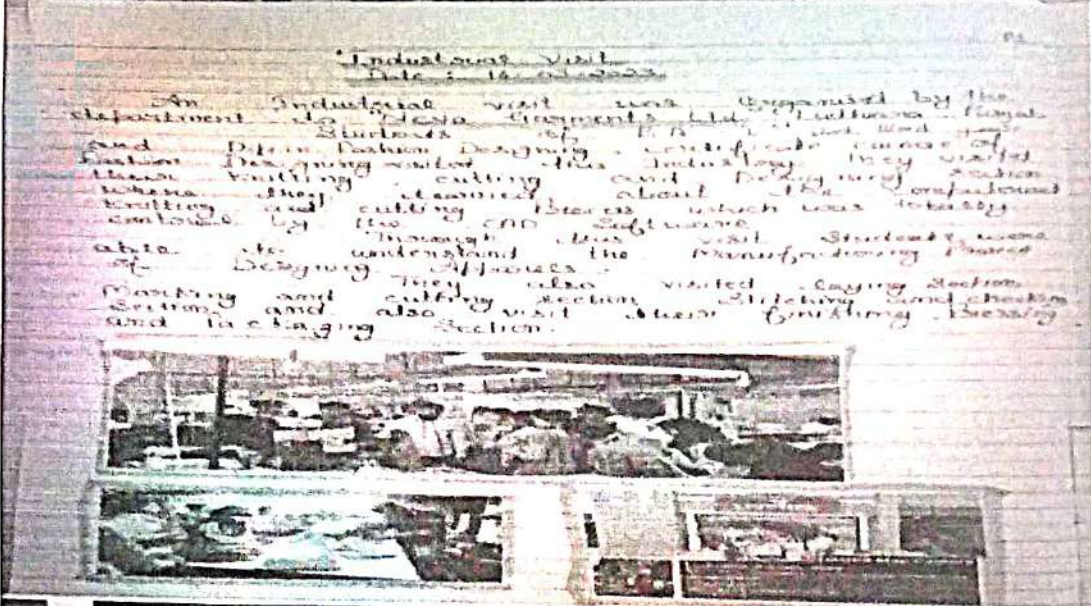 Industrial Visit
Date : 14
An Industrial visit was Organised by the
department to Nova Garments Ltd. Ludhiana Punjab
Students of
and Dip in Fashion Designing, Certificate Course of
Fashion Designing visited this Industry. They visited
their Knitting, cutting and Designing section
where they learned about the
Knitting and cutting which was totally
by the CAD Software
Through this visit Students were
able to understand the Manufacturing Process
of Designing Apparels.
They also visited Laying Section
Marking and cutting section Stitching and
Section and also visit their finishing Pressing
and Packaging Section.